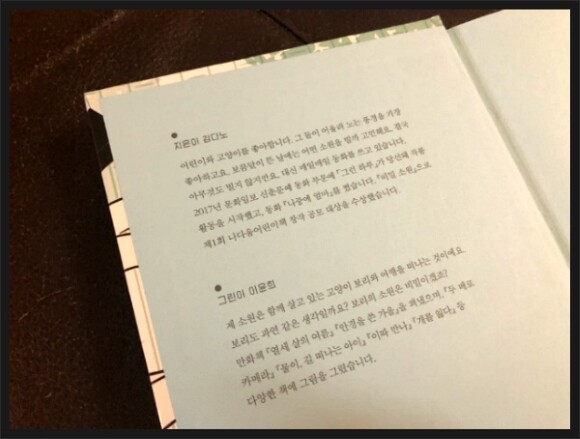 지은이 김다노
어린이와 고양이를 좋아합니다. 그 둘이 어울려 노는 풍경을 가장
좋아하고요. 보름달이 뜬 날에는 어떤 소원을 빌까 고민해요. 결국
아무것도 빌지 않지만요. 대신 매일매일 동화를 쓰고 있습니다.
2017년 문화일보 신춘문예 동화 부문에 「그런 하루」가 당선돼 작품
활동을 시작했고, 동화 『나중에 엄마』를 썼습니다. 『비밀 소원』으로
제1회 나다움어린이책 창작 공모 대상을 수상했습니다.
그린이 이윤희
제 소원은 함께 살고 있는 고양이 보리와 여행을 떠나는 것이에요.
보리도 과연 같은 생각일까요? 보리의 소원은 비밀이겠죠?
만화책 『열세 살의 여름』 『안경을 쓴 가을』을 펴냈으며, 『두 배로
카메라』 『몰이, 길 떠나는 아이』 『이따 만나』 『개를 잃다』 등
다양한 책에 그림을 그렸습니다.